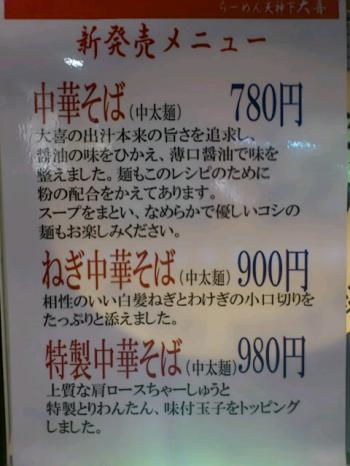 らーめん天神下大喜
新発売メニュー
中華そば(中太麺) 780円
大喜の出汁本来の旨さを追求し、
醤油の味をひかえ、薄口醤油で味を
整えました。麺もこのレシピのために
粉の配合をかえてあります。
スープをまとい、なめらかで優しいコシの
麺もお楽しみください。
ねぎ中華そば(中太麺) 900円
相性のいい白髪ねぎとわけぎの小口切りを
たっぷりと添えました。
特製中華そば(中太麺) 980円
上質な肩ロースちゃーしゅうと
特製とりわんたん、味付玉子をトッピング
しました。